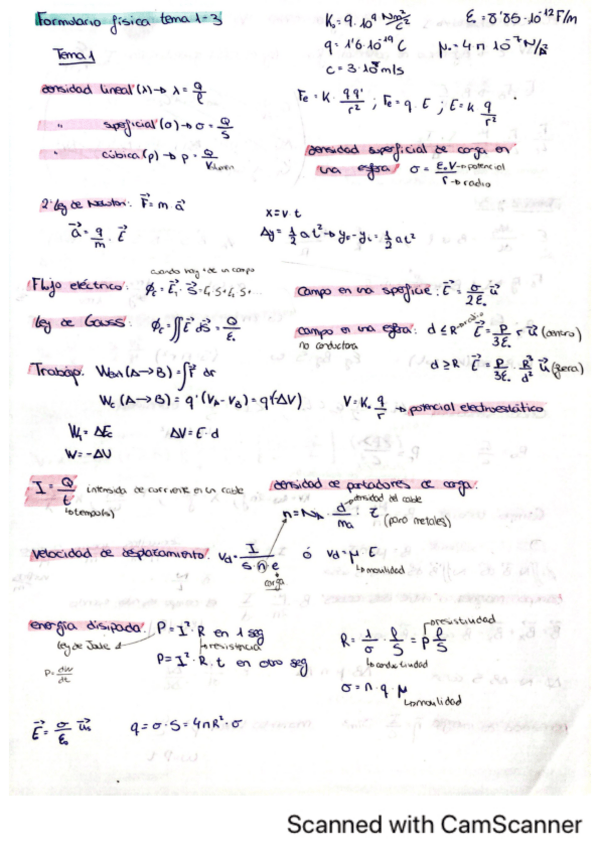 Formulario física tema 1-3
K₀ = 9·10⁹ Nm²/C²
ε₀ = 8'85·10⁻¹² F/m
q = 1'6·10⁻¹⁹ C
μ₀ = 4π 10⁻⁷ N/A²
c = 3·10⁸ m/s
Tema 1
densidad lineal (λ) → λ = q/l
Fe = K · qq'/r² ; Fe = q · E ; E = K q/r²
" superficial (σ) → σ = Q/S
" cúbica (ρ) → ρ = Q/Volumen
densidad superficial de carga en
una esfera σ = ε₀·V/r → potencial
→ radio
2ª ley de Newton: F = m a
a = q/m · E
x = v·t
Δy = 1/2 a t² → y₀ - y₁ = 1/2 at²
cuando hay + de un campo
Flujo eléctrico: ϕε = E₁ · S = E₁ S + E₂ S₂ +
Campo en una superficie: E = σ/2ε₀ u
Ley de Gauss: ϕε = ∬ E dS = Q/ε₀
Campo en una esfera: d ≤ R → radio E = ρ/3ε₀ r u (dentro)
no conductora
d ≥ R E = ρ/3ε₀ · R³/d² u (fuera)
Trabajo: (A→B) = ∫F dr
We (A→B) = q' (VA - VB) = q'(ΔV)
V = K₀ q/r → potencial electroestático
W = ΔEc
ΔV = E · d
W = -ΔU
I = Q/t intensidad de corriente en un cable
↳ tiempo (s)
densidad de portadores de carga:
densidad del cable
n = NA · d/ma · z (para metales)
velocidad de desplazamiento: vd = I/s·n·e ó vd = μ · E
carga
↳ movilidad
energía disipada: P = I² · R en 1 seg
ley de Joule
↳ resistencia
P = dw/dt
P = I² · R · t en otro seg
→ resistividad
R = 1/σ · l/S = ρ l/S
↳ conductividad
σ = n · q · μ
↳ movilidad
E = σ/ε₀ u
q = σ · S = 4πR² · σ
Scanned with CamScanner